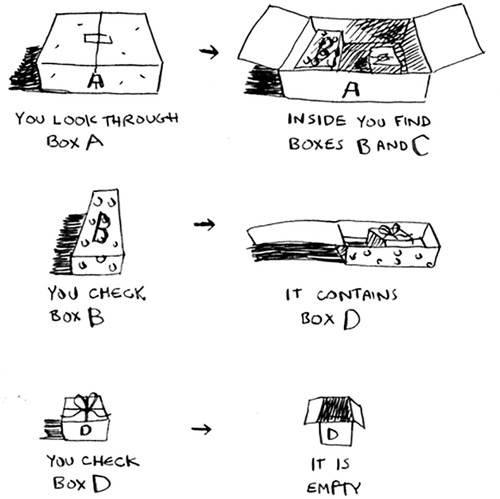 A
A
B
YOU LOOK THROUGH
BOX A
INSIDE YOU FIND
BOXES B AND C
B
YOU CHECK
BOX B
IT CONTAINS
BOX D
D
D
YOU CHECK
BOX D
IT IS
EMPTY